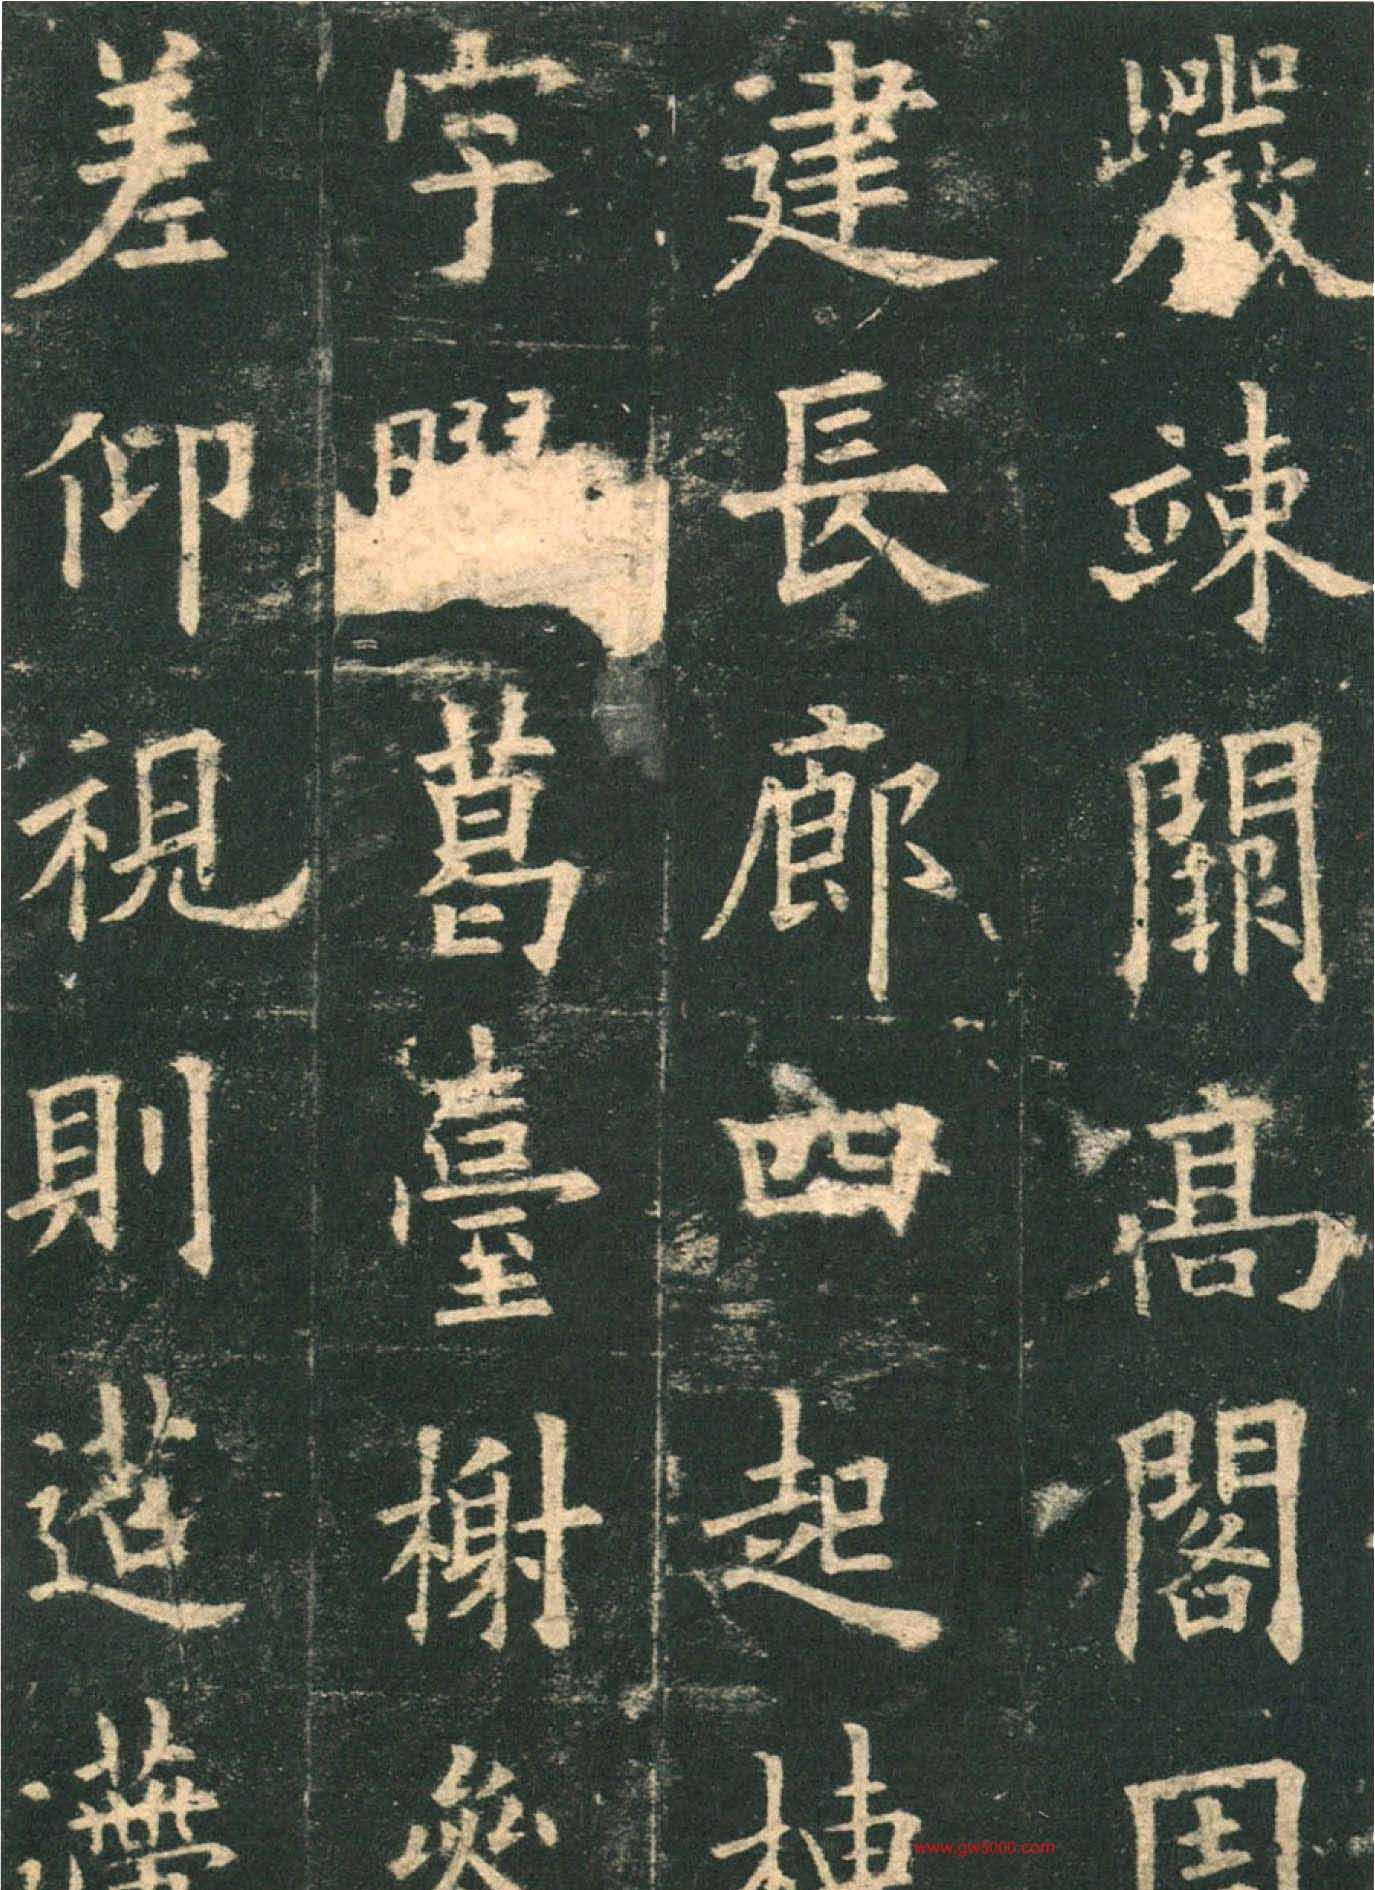 巖竦闕高閣周
建長廊四起棟
宇葛臺榭參
差仰視則迢遰
www.gw5000.com